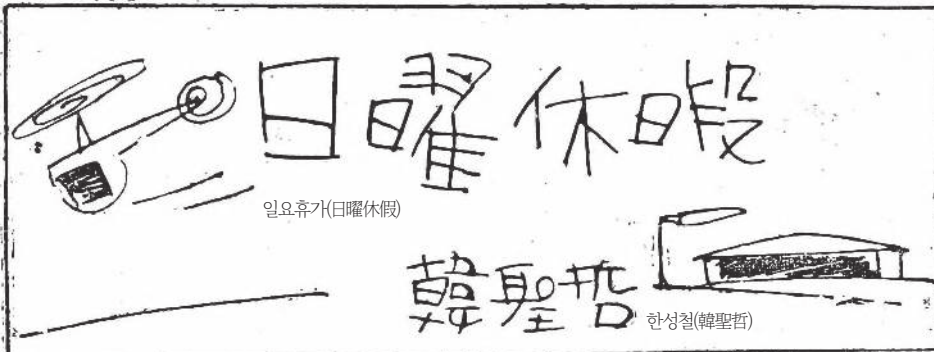 日曜休暇
일요휴가(日曜休假)
韓聖哲
한성철(韓聖哲)